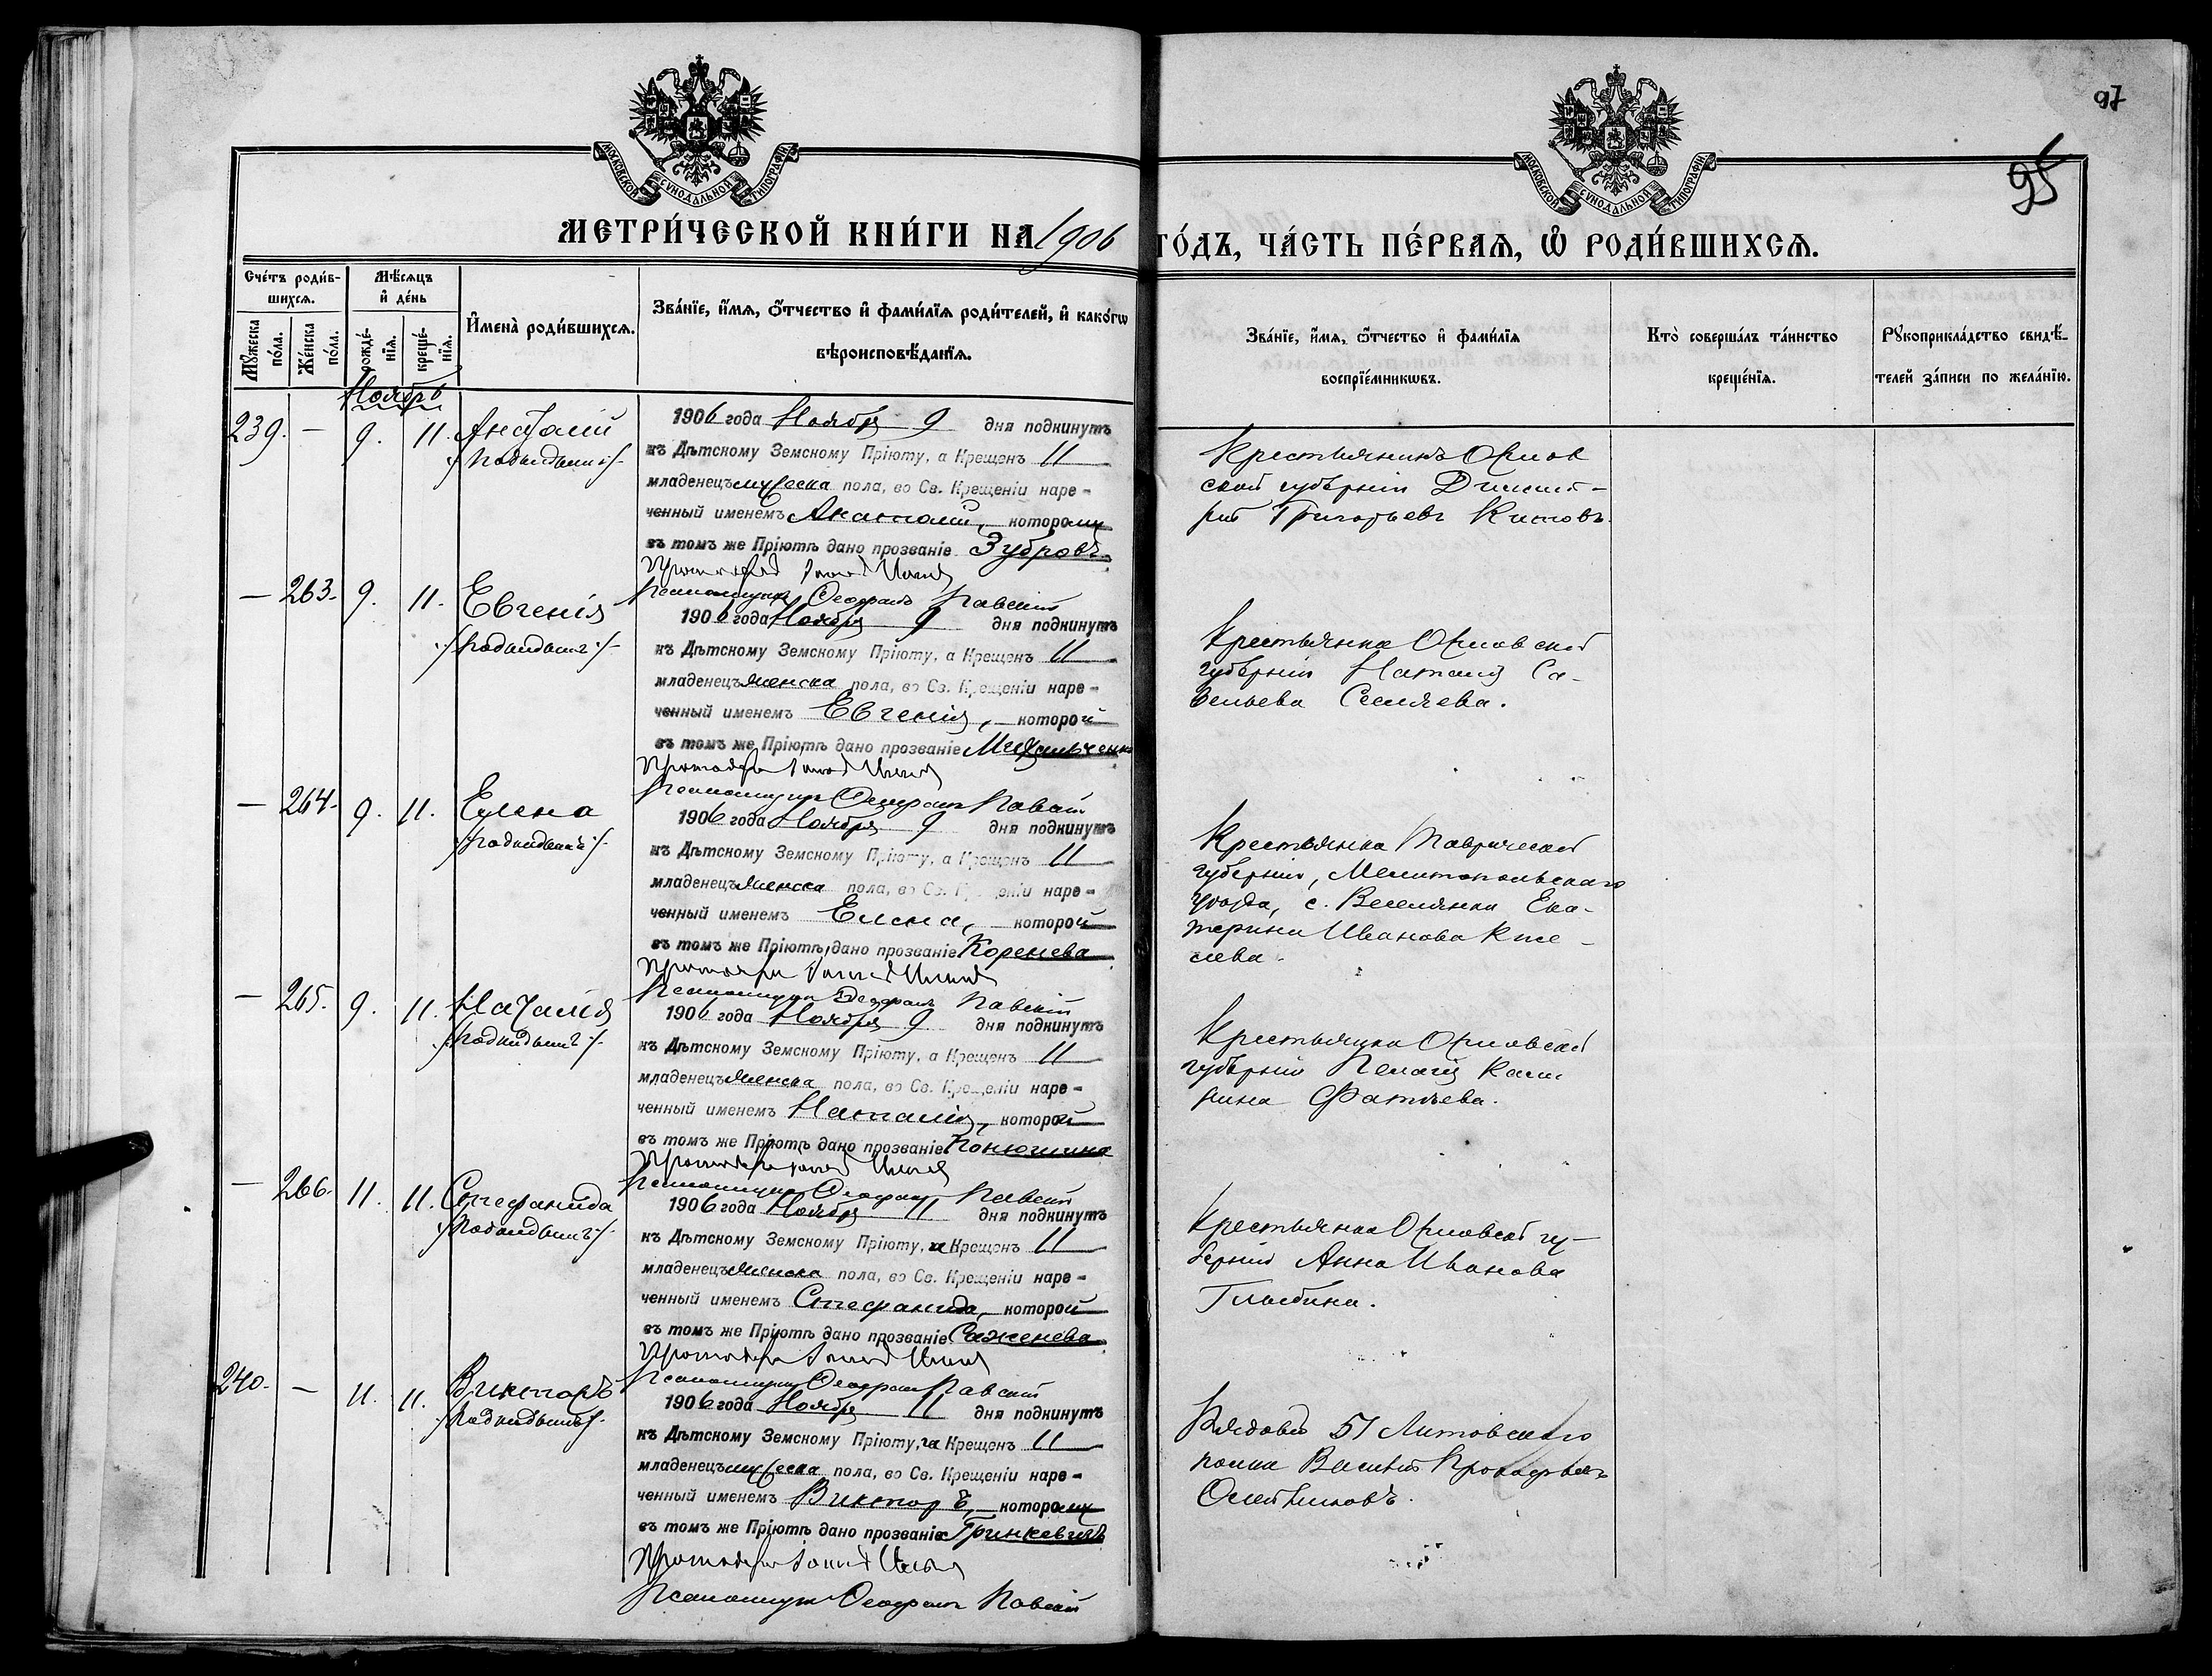 97
95
МОСКОВСКОЙ СѴНОДАЛЬНОЙ ТИПОГРАФІИ
МОСКОВСКОЙ СѴНОДАЛЬНОЙ ТИПОГРАФІИ
МЕТРИ́ЧЕСКОЙ КНИ́ГИ НА 1906 ГО́ДЪ, ЧА́СТЬ ПЕ́РВАѦ, Ѡ҆ РОДИ́ВШИХСѦ.
Сче́тъ роди́в-
шихсѧ.
Мꙋ́жеска по́ла.
Же́нска по́ла.
Мѣ́сѧцъ
и҆ де́нь
рожде́-
нїѧ.
креще́-
нїѧ.
И҆мена̀ роди́вшихсѧ.
Зва́нїе, и҆́мѧ, ѻ҆́тчество и҆ фами́лїѧ роди́телей, и҆ како́гѡ
вѣроисповѣ́данїѧ.
Зва́нїе, и҆́мѧ, ѻ҆́тчество и҆ фами́лїѧ
воспрїе́мникѡвъ.
Кто̀ соверша́лъ та́инство
креще́нїѧ.
Рꙋкоприкла́дство свидѣ́-
телей за́писи по жела́нїю.
Ноябрь
239. — 9. 11. Анатолій
/:подкидышъ:/
1906 года Ноября 9 дня подкинутъ
къ Дѣтскому Земскому Пріюту, а Крещенъ 11
младенецъ мужеска пола, во Св. Крещеніи наре-
ченный именемъ Анатолій, которому
въ томъ же Пріютѣ дано прозваніе Зубровъ.
Псаломщикъ Павскій
Крестьянинъ Орлов
ской губерніи Димит-
рій Григорьевъ Китовъ.
— 263. 9. 11. Евгенія
/:подкидышъ:/
1906 года Ноября 9 дня подкинутъ
къ Дѣтскому Земскому Пріюту, а Крещенъ 11
младенецъ женска пола, во Св. Крещеніи наре-
ченный именемъ Евгенія, которой
въ томъ же Пріютѣ дано прозваніе
Псаломщикъ Павскій
Крестьянка Орловской
губерніи Наталія Са-
вельева
— 264. 9. 11. Елена
/:подкидышъ:/
1906 года Ноября 9 дня подкинутъ
къ Дѣтскому Земскому Пріюту, а Крещенъ 11
младенецъ женска пола, во Св. Крещеніи наре-
ченный именемъ Елена, которой
въ томъ же Пріютѣ дано прозваніе Коренева
Псаломщикъ Павскій
Крестьянка Таврической
губерніи, Мелитопольскаго
уѣзда, с. Веселянки Ека-
терина Иванова Кисе-
лева.
— 265. 9. 11. Наталія
/:подкидышъ:/
1906 года Ноября 9 дня подкинутъ
къ Дѣтскому Земскому Пріюту, а Крещенъ 11
младенецъ женска пола, во Св. Крещеніи наре-
ченный именемъ Наталія, которой
въ томъ же Пріютѣ дано прозваніе Конюшина
Псаломщикъ Павскій
Крестьянка Орловской
губерніи Пелагія
Фатѣева.
— 266. 11. 11. Стефанида
/:подкидышъ:/
1906 года Ноября 11 дня подкинутъ
къ Дѣтскому Земскому Пріюту, и Крещенъ 11
младенецъ женска пола, во Св. Крещеніи наре-
ченный именемъ Стефанида, которой
въ томъ же Пріютѣ дано прозваніе Саженева
Псаломщикъ Павскій
Крестьянка Орловской гу-
берніи Анна Иванова
240. — 11. 11. Викторъ
/:подкидышъ:/
1906 года Ноября 11 дня подкинутъ
къ Дѣтскому Земскому Пріюту, и Крещенъ 11
младенецъ мужеска пола, во Св. Крещеніи наре-
ченный именемъ Викторъ, которому
въ томъ же Пріютѣ дано прозваніе Гринкевичъ
Псаломщикъ Павскій
Рядовой 51 Литовскаго
полка Василій Прокофьевъ